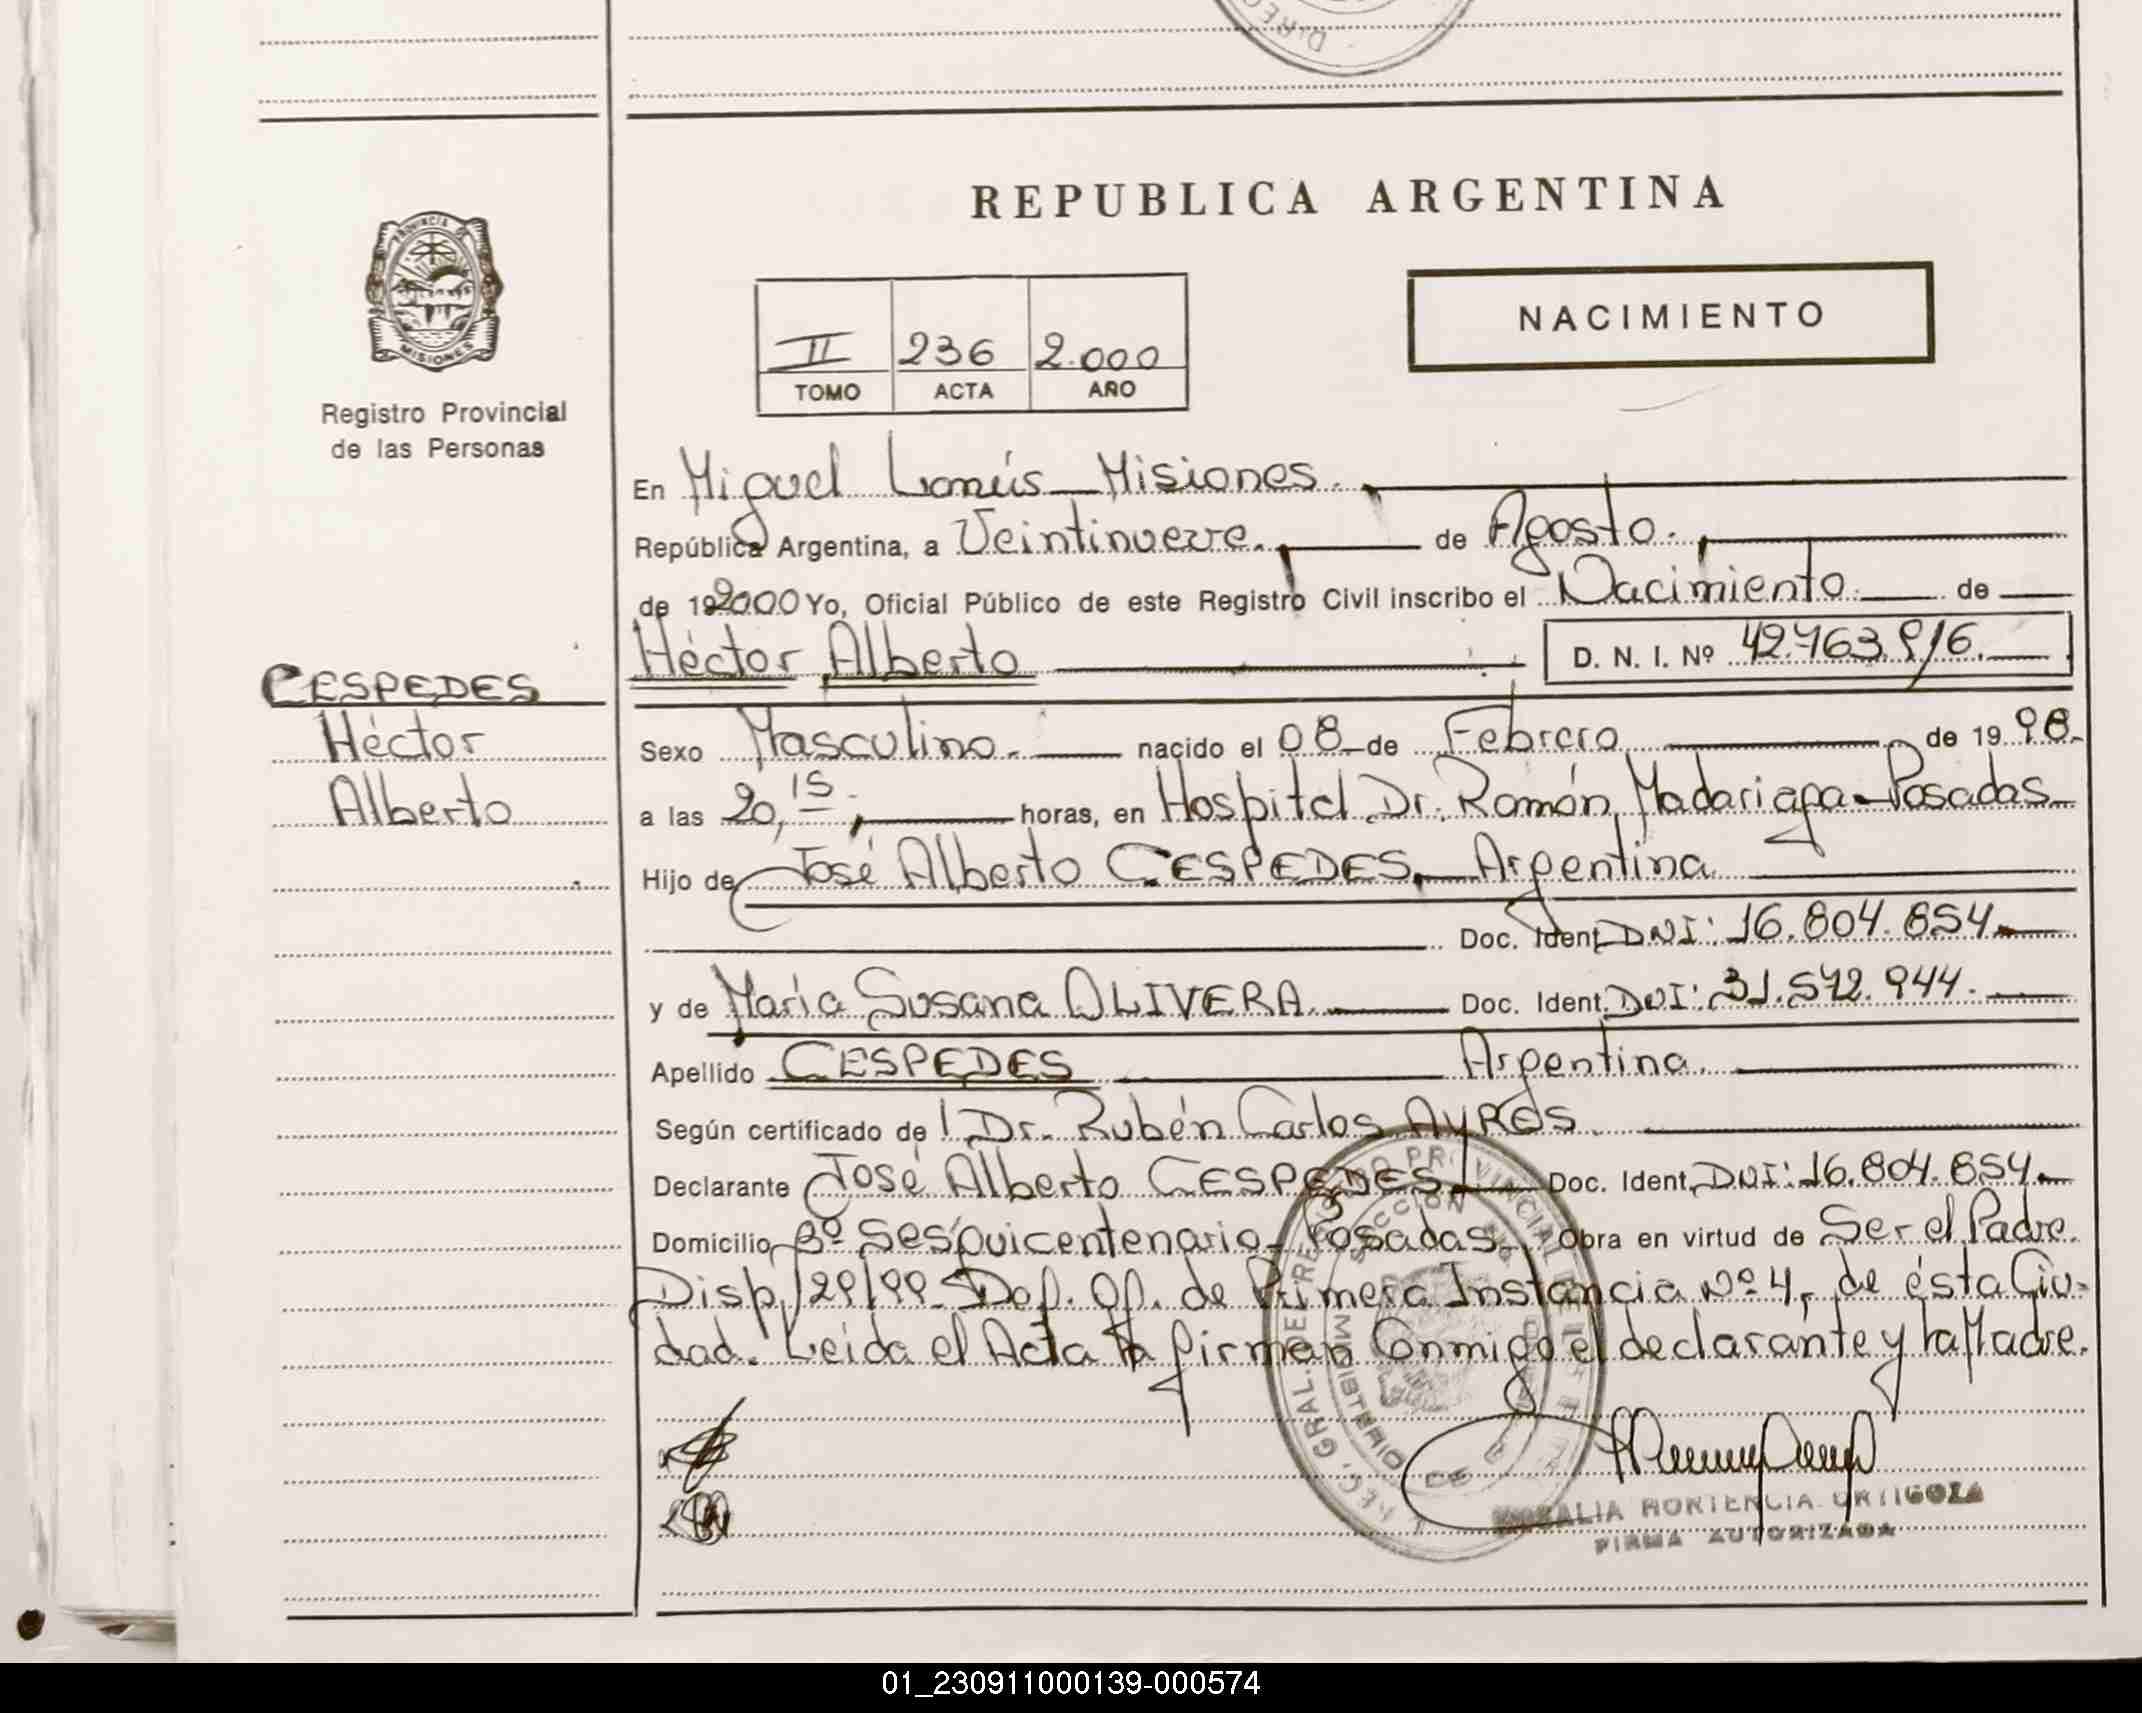 REPUBLICA ARGENTINA
NACIMIENTO
II 236 2.000
TOMO ACTA AÑO
PROVINCIA DE
MISIONES
Registro Provincial
de las Personas
En Miguel Lanús - Misiones.
República Argentina, a Veintinueve. de Agosto.
de 192000 Yo, Oficial Público de este Registro Civil inscribo el Nacimiento de
Héctor Alberto D. N. I. Nº 42.763.916.
CESPEDES
Héctor
Alberto
Sexo Masculino. nacido el 08 de Febrero de 1998.
a las 20,15. horas, en Hospital Dr. Ramón Madariaga - Posadas
Hijo de José Alberto CESPEDES. Argentina
Doc. Ident. DNI: 16.804.854.
y de María Susana OLIVERA. Doc. Ident. DNI: 31.572.944.
Apellido CESPEDES Argentina.
Según certificado de l Dr. Rubén Carlos AYRES.
Declarante José Alberto CESPEDES. Doc. Ident. DNI: 16.804.854.
Domicilio Bº Sesquicentenario - Posadas. Obra en virtud de Ser el Padre.
Disp. 29/99 - Def. Of. de Primera Instancia Nº 4, de ésta Ciu-
dad. Leída el Acta la firman Conmigo el declarante y la Madre.
HORTENCIA ORTIGOZA
FIRMA AUTORIZADA
01_230911000139-000574